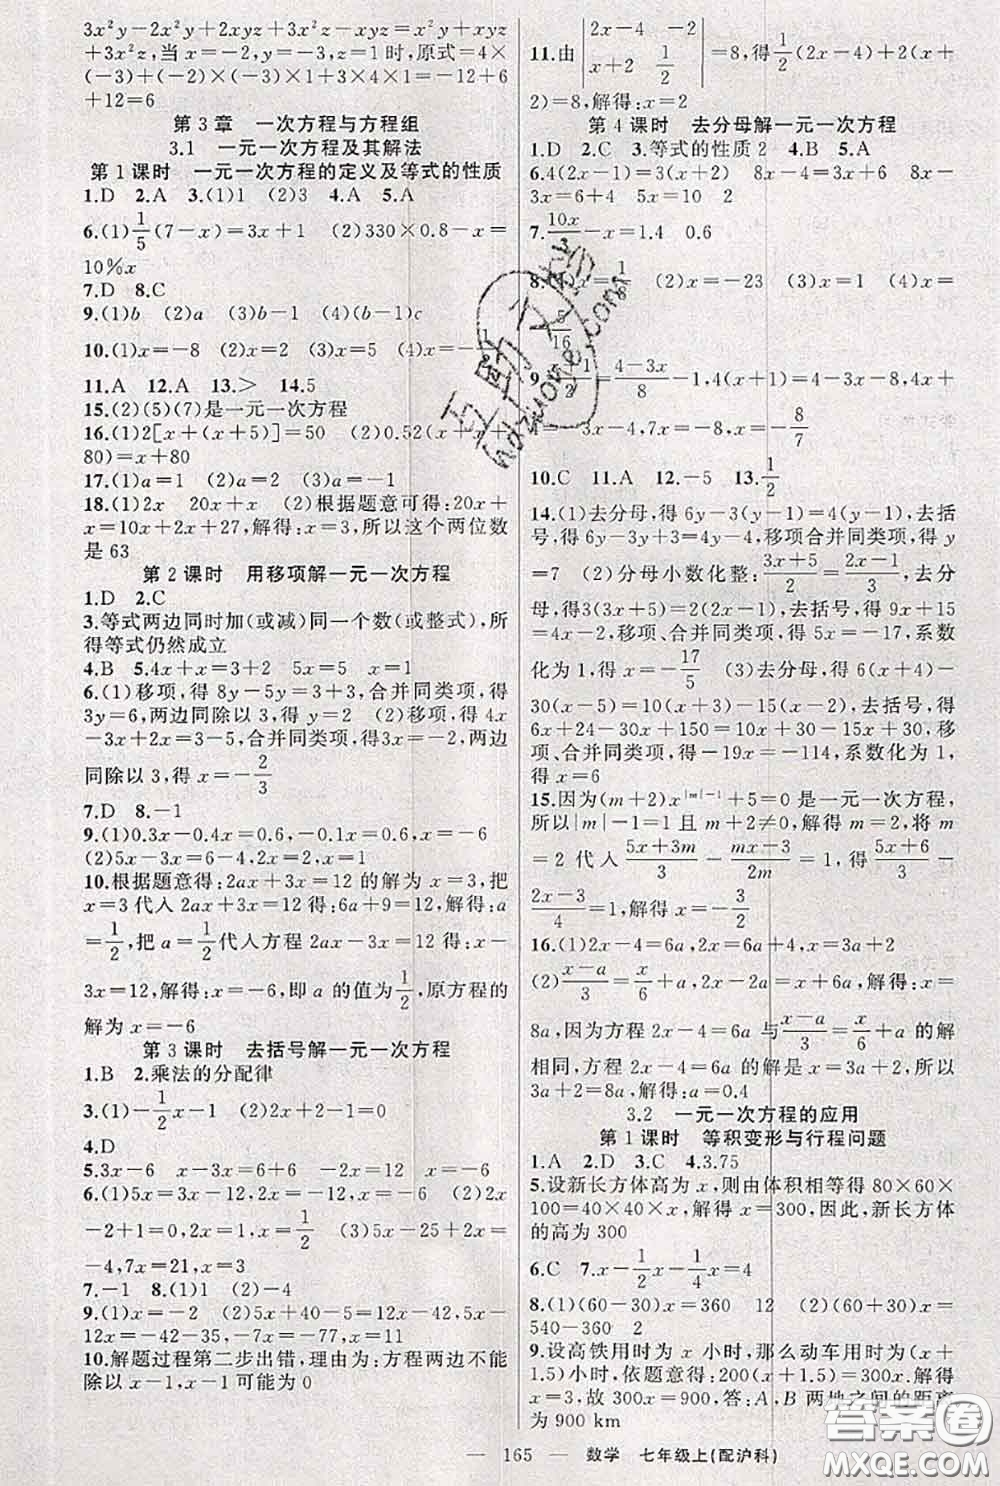 3x²y－2x²y＋2xyz＋3x²z－xyz＝x²y＋xyz
＋3x²z,当 x＝－2,y＝－3,z＝1 时,原式＝4×
(－3)＋(－2)×(－3)×1＋3×4×1＝－12＋6
＋12＝6
第 3 章　一次方程与方程组
3.1　一元一次方程及其解法
第 1 课时　一元一次方程的定义及等式的性质
1.D　2.A　3.(1)1　(2)3　4.A　5.A
6.(1)1/5(7－x)＝3x＋1　(2)330×0.8－x＝
10%x
7.D　8.C
9.(1)b　(2)a　(3)－1　(4)(b－1)c
10.(1)x＝－8　(2)x＝2　(3)x＝5　(4)x＝－
11.A　12.A　13.＞　14.5
15.(2)(5)(7)是一元一次方程
16.(1)2[x＋(x＋5)]＝50　(2)0.52(x＋x＋
80)＝x＋80
17.(1)a＝1　(2)a＝2　(3)a＝－1
18.(1)2x　20x＋x　(2)根据题意可得:20x＋
x＝10x＋2x＋27,解得:x＝3,所以这个两位数
是 63
第 2 课时　用移项解一元一次方程
1.D　2.C
3.等式两边同时加(或减)同一个数(或整式),所
得等式仍然成立
4.B　5.4x＋x＝3＋2　5x＝5　x＝1
6.(1)移项,得 8y－5y＝3＋3,合并同类项,得
3y＝6,两边同除以 3,得 y＝2　(2)移项,得 4x
－3x＋2x＝3－5,合并同类项,得 3x＝－2,两边
同除以 3,得 x＝－2/3
7.D　8.－1
9.(1)0.3x－0.4x＝0.6,－0.1x＝0.6,x＝－6
(2)5x－3x＝6－4,2x＝2,x＝1
10.根据题意得:2ax＋3x＝12 的解为 x＝3,把
x＝3 代入 2ax＋3x＝12 得:6a＋9＝12,解得:a
＝1/2,把 a＝1/2代入方程 2ax－3x＝12 得:x－
3x＝12,解得:x＝－6,即 a 的值为1/2,原方程的
解为 x＝－6
第 3 课时　去括号解一元一次方程
1.B　2.乘法的分配律
3.(1)－1/2x－1　(2)2x＋2－1＝0
4.D
5.3x－6　x－3x＝6＋6　－2x＝12　x＝－6
6.(1)5x－2x＝－12,3x＝－12,x＝－4　(2)2x
－2＋1＝0,2x＝1,x＝1/2　(3)5x－25＋2x＝
－4,7x＝21,x＝3
7.－1　8.(1)1　(2)－4
9.(1)x＝－2　(2)5x＋40－5＝12x－42,5x－
12x＝－42－35,－7x＝－77,x＝11
10.解题过程第二步出错,理由为:方程两边不能
除以 x－1,x－1 可能为 0
11.由|2x－4　－2
x＋2　1/2|＝8,得1/2(2x－4)＋2(x＋
2)＝8,解得:x＝2
第 4 课时　去分母解一元一次方程
1.D　2.C　3.等式的性质 2　4.B　5.A
6.4(2x－1)＝3(x＋2)　8x－4＝3x＋6　8x－
3x＝6＋4　5x＝10　2
7.10x/3－x＝1.4　0.6
8.　(2)x＝－3　(3)x＝1　(4)x＝
16
9.　＝4－3x/8－1,4(x＋1)＝4－3x－8,4x＋
4＝－3x－4,7x＝－8,x＝－8/7
10.C　11.A　12.－5　13.1/2
14.(1)去分母,得 6y－3(y－1)＝4(y－1),去括
号,得 6y－3y＋3＝4y－4,移项合并同类项,得 y
＝7　(2)分母小数化整:3x＋5/2＝2x－1/3,去分
母,得3(3x＋5)＝2(2x－1),去括号,得 9x＋15＝
4x－2,移项、合并同类项,得 5x＝－17,系数
化为 1,得 x＝－17/5　(3)去分母,得 6(x＋4)－
30(x－5)＝10(x＋3)－15(x－2),去括号,得
6x＋24－30x＋150＝10x＋30－15x＋30,移
项、合并同类项,得－19x＝－114,系数化为 1,
得 x＝6
15.因为(m＋2)x^|m|－1＋5＝0 是一元一次方程,
所以|m|－1＝1 且 m＋2≠0,解得 m＝2,将 m
＝2 代入5x＋3m/3－mx－3/2m＝1,得5x＋6/3－
2x－3/4＝1,解得 x＝－3/2
16.(1)2x－4＝6a,2x＝6a＋4,x＝3a＋2
(2)x－a/3＝x/6＋a,2x－2a＝x＋6a,解得:x＝
8a,因为方程 2x－4＝6a 与x－a/3＝x/6＋a 的解
相同,方程 2x－4＝6a 的解是 x＝3a＋2,所以
3a＋2＝8a,解得:a＝0.4
3.2　一元一次方程的应用
第 1 课时　等积变形与行程问题
1.A　2.D　3.C　4.3.75
5.设新长方体高为 x,则由体积相等得 80×60×
100＝40×40×x,解得 x＝300,因此,新长方体
的高为 300
6.C　7.x－1/2x－1/4x＝4
8.(1)(60－30)x＝360　12　(2)(60＋30)x＝
540－360　2
9.设高铁用时为 x 小时,那么动车用时为(x＋
1.5)小时,依题意得:200(x＋1.5)＝300x,解得
x＝3,故 300x＝900,答:A,B 两地之间的距离
为 900 km
— 165 —　数学　七年级上(配沪科)
互助文学
hdzuone.com
答案圈
MXQE.COM